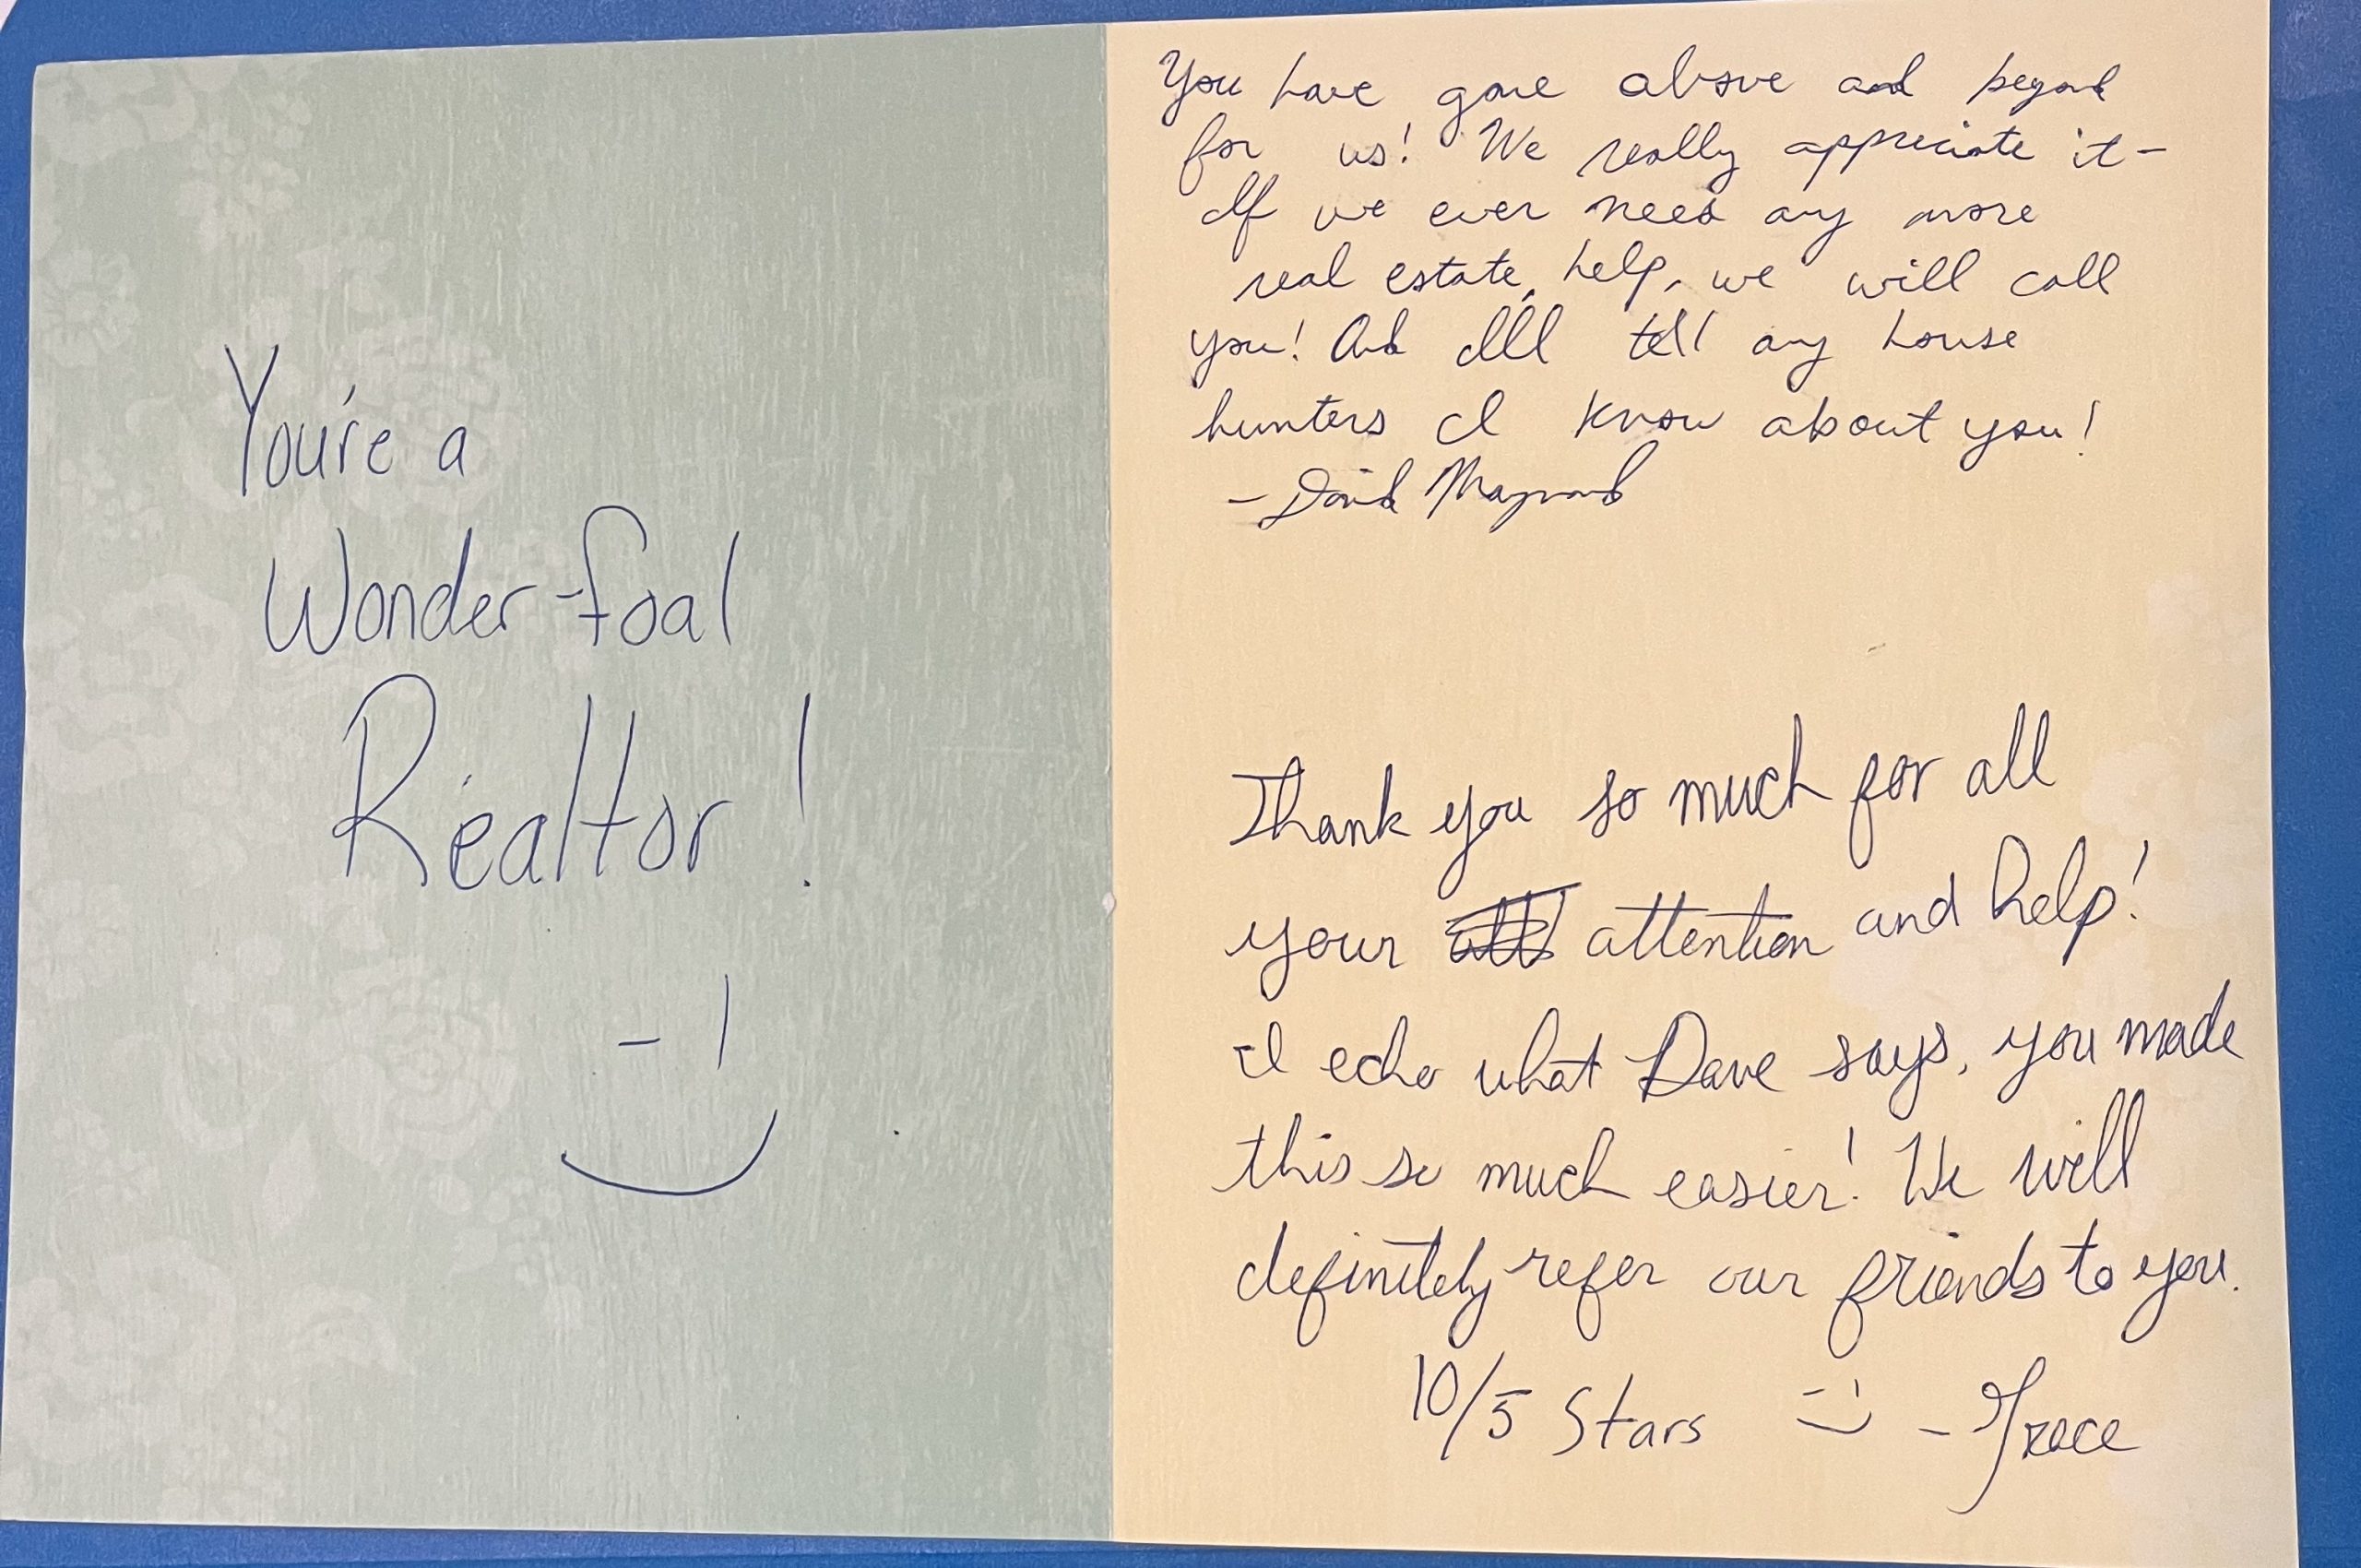 You're a
Wonder-foal
Realtor!
You have gone above and beyond
for us! We really appreciate it-
If we ever need any more
real estate help, we will call
you! And I'll tell any house
hunters I know about you!
- David Maynard
Thank you so much for all
your attention and help!
I echo what Dave says, you made
this so much easier! We will
definitely refer our friends to you.
10/5 Stars - Grace